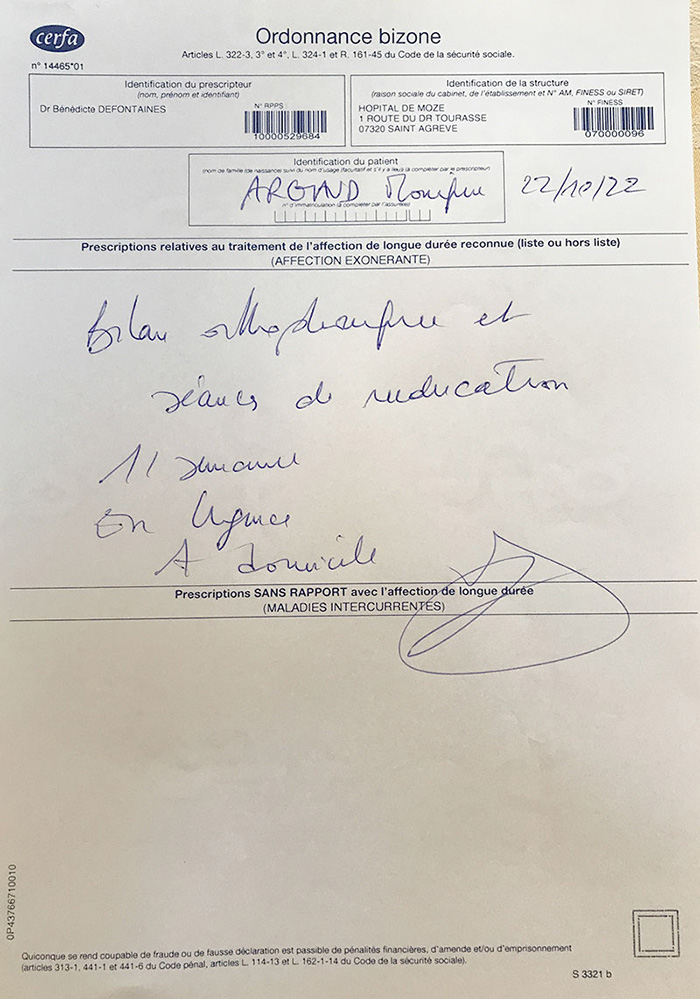 cerfa
n° 14465*01
Ordonnance bizone
Articles L. 322-3, 3° et 4°, L. 324-1 et R. 161-45 du Code de la sécurité sociale.
Identification du prescripteur
(nom, prénom et identifiant)
Dr Bénédicte DEFONTAINES
N° RPPS
10000529684
Identification de la structure
(raison sociale du cabinet, de l'établissement et N° AM, FINESS ou SIRET)
HOPITAL DE MOZE
1 ROUTE DU DR TOURASSE
07320 SAINT AGREVE
N° FINESS
070000096
Identification du patient
(nom de famille (de naissance) suivi du nom d'usage (facultatif et s'il y a lieu)) (à compléter par le prescripteur)
22/10/22
n° d'immatriculation (à compléter par l'assuré(e))
Prescriptions relatives au traitement de l'affection de longue durée reconnue (liste ou hors liste)
(AFFECTION EXONERANTE)
bilan orthophonique et
séances de reeducation
1/ semaine
En Urgence
A domicile
Prescriptions SANS RAPPORT avec l'affection de longue durée
(MALADIES INTERCURRENTES)
0P43766710010
Quiconque se rend coupable de fraude ou de fausse déclaration est passible de pénalités financières, d'amende et/ou d'emprisonnement
(articles 313-1, 441-1 et 441-6 du Code pénal, articles L. 114-13 et L. 162-1-14 du Code de la sécurité sociale).
S 3321 b